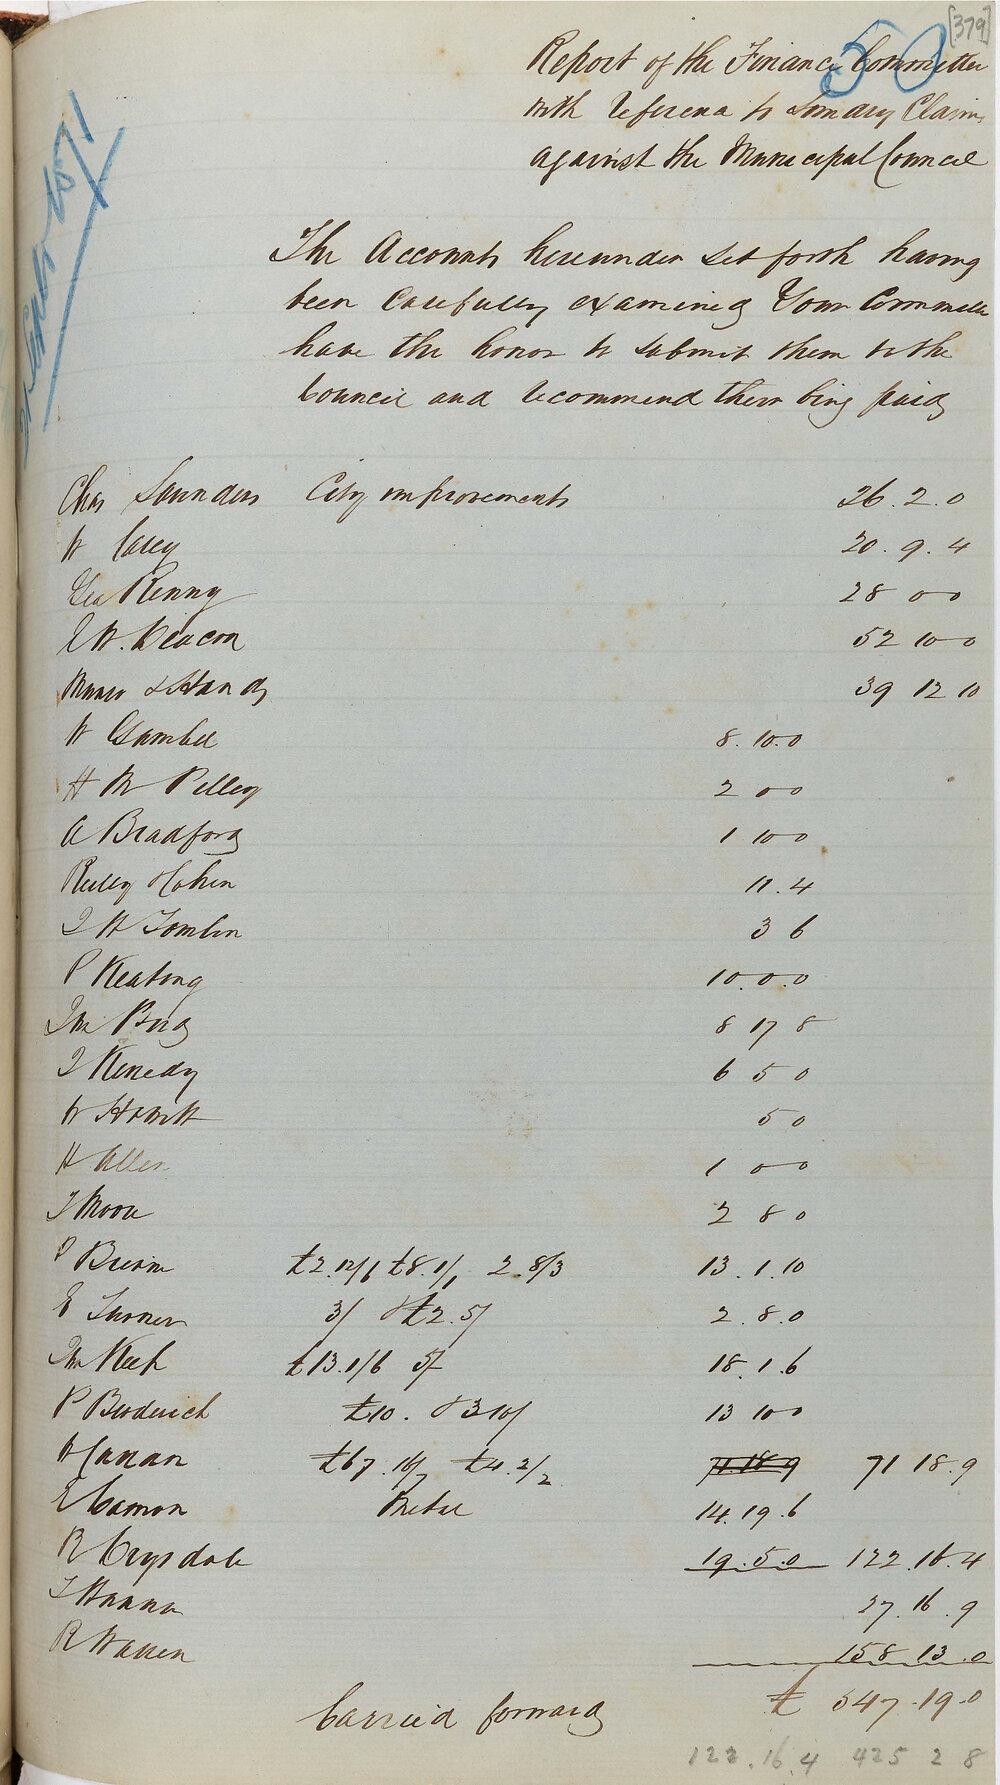 [379]
50
Report of the Finance Committee
with reference to Sundry Claims
against the Municipal Council
Sept 1871
The Accounts hereunder set forth having
been Carefully examined Your Committee
have the honor to submit them to the
Council and recommend them being paid
Chas Saunders City improvements 26.2.0
W Caley 20.9.4
Geo Renny 28 0 0
E W. Deacon 52 10 0
Munro & Handy 39 12 10
W Gambel 8.10.0
H M Pelley 2 0 0
A Bradford 1 10 0
Reilly & Cohen 11.4
J W Tomlin 3 6
P Keating 10.0.0
Bird 8 17 8
J Kenedy 6 5 0
W Howitt 5 0
H Allen 1 0 0
J Moore 2 8 0
£2.12/6 £8.1/1 2.8/3 13.1.10
E Turner 3/ & £2.5/ 2.8.0
Keep £13.1/6 5/ 18.1.6
P Broderick £10. & 3 10/ 13 10 0
W Curran £67.16/7 £4.2/2 71.18.9 71 18.9
E Camron Metal 14.19.6
R Crysdale 19.5.0 122.16.4
27.16.9
R Warren 158 13.0
Carried forward £ 547.19.0
122.16.4 425 2 8